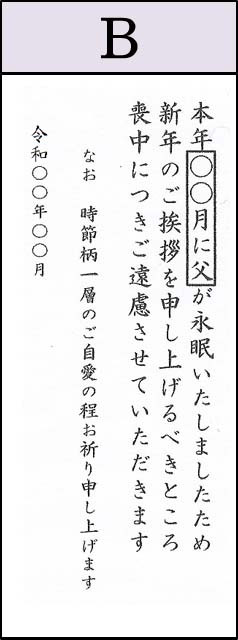 B
本年〇〇月に父が永眠いたしましたため
新年のご挨拶を申し上げるべきところ
喪中につきご遠慮させていただきます
なお　時節柄一層のご自愛の程お祈り申し上げます
令和〇〇年〇〇月